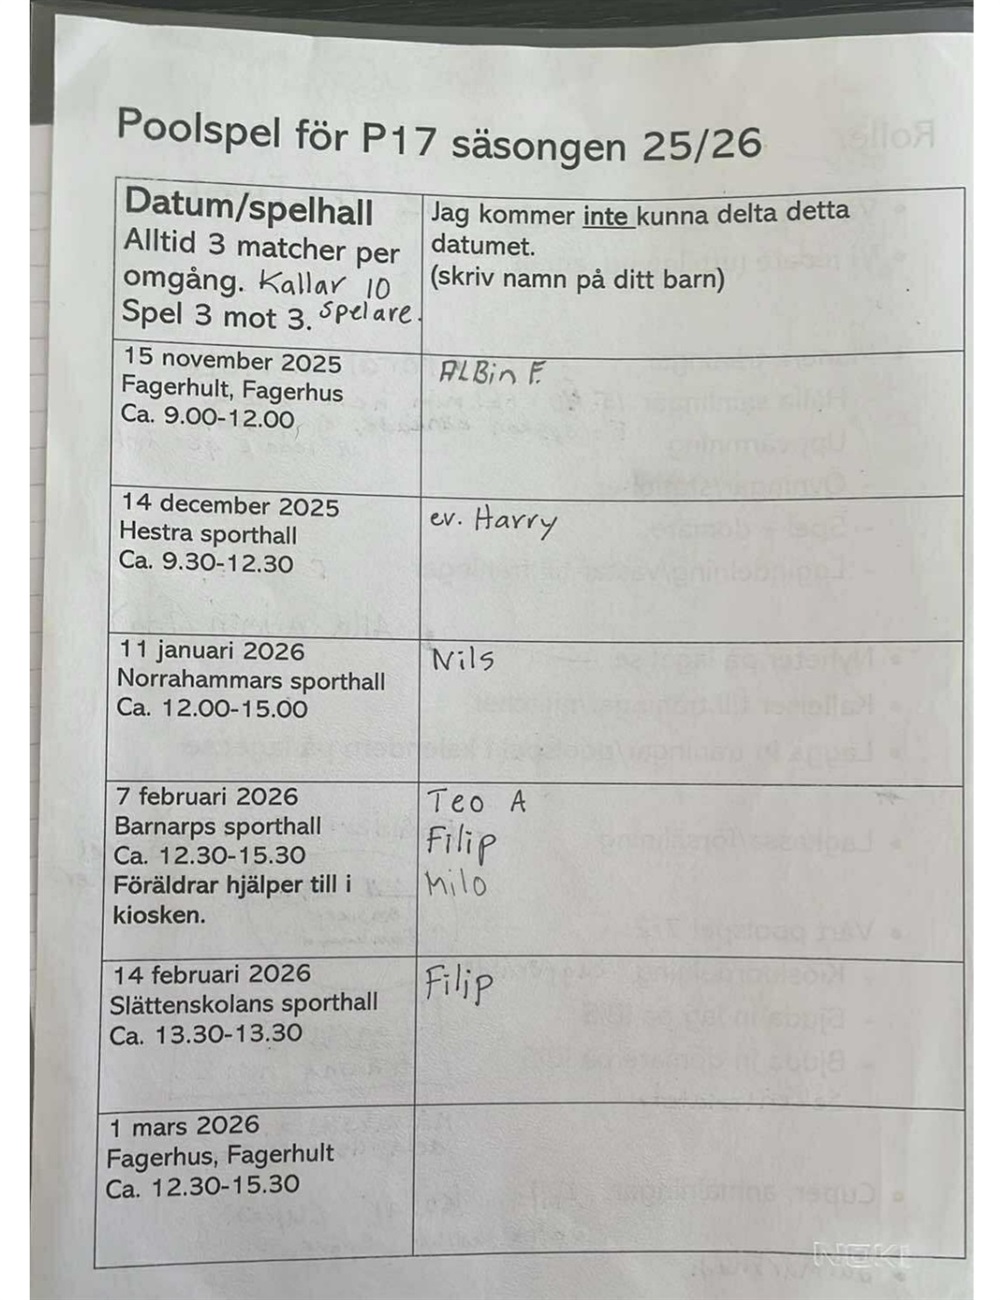 Poolspel för P17 säsongen 25/26
Datum/spelhall
Alltid 3 matcher per
omgång. Kallar 10
Spel 3 mot 3. spelare.
Jag kommer inte kunna delta detta
datumet.
(skriv namn på ditt barn)
15 november 2025
Fagerhult, Fagerhus
Ca. 9.00-12.00
ALBin F.
14 december 2025
Hestra sporthall
Ca. 9.30-12.30
ev. Harry
11 januari 2026
Norrahammars sporthall
Ca. 12.00-15.00
Nils
7 februari 2026
Barnarps sporthall
Ca. 12.30-15.30
Föräldrar hjälper till i
kiosken.
Teo A
Filip
Milo
14 februari 2026
Slättenskolans sporthall
Ca. 13.30-13.30
Filip
1 mars 2026
Fagerhus, Fagerhult
Ca. 12.30-15.30